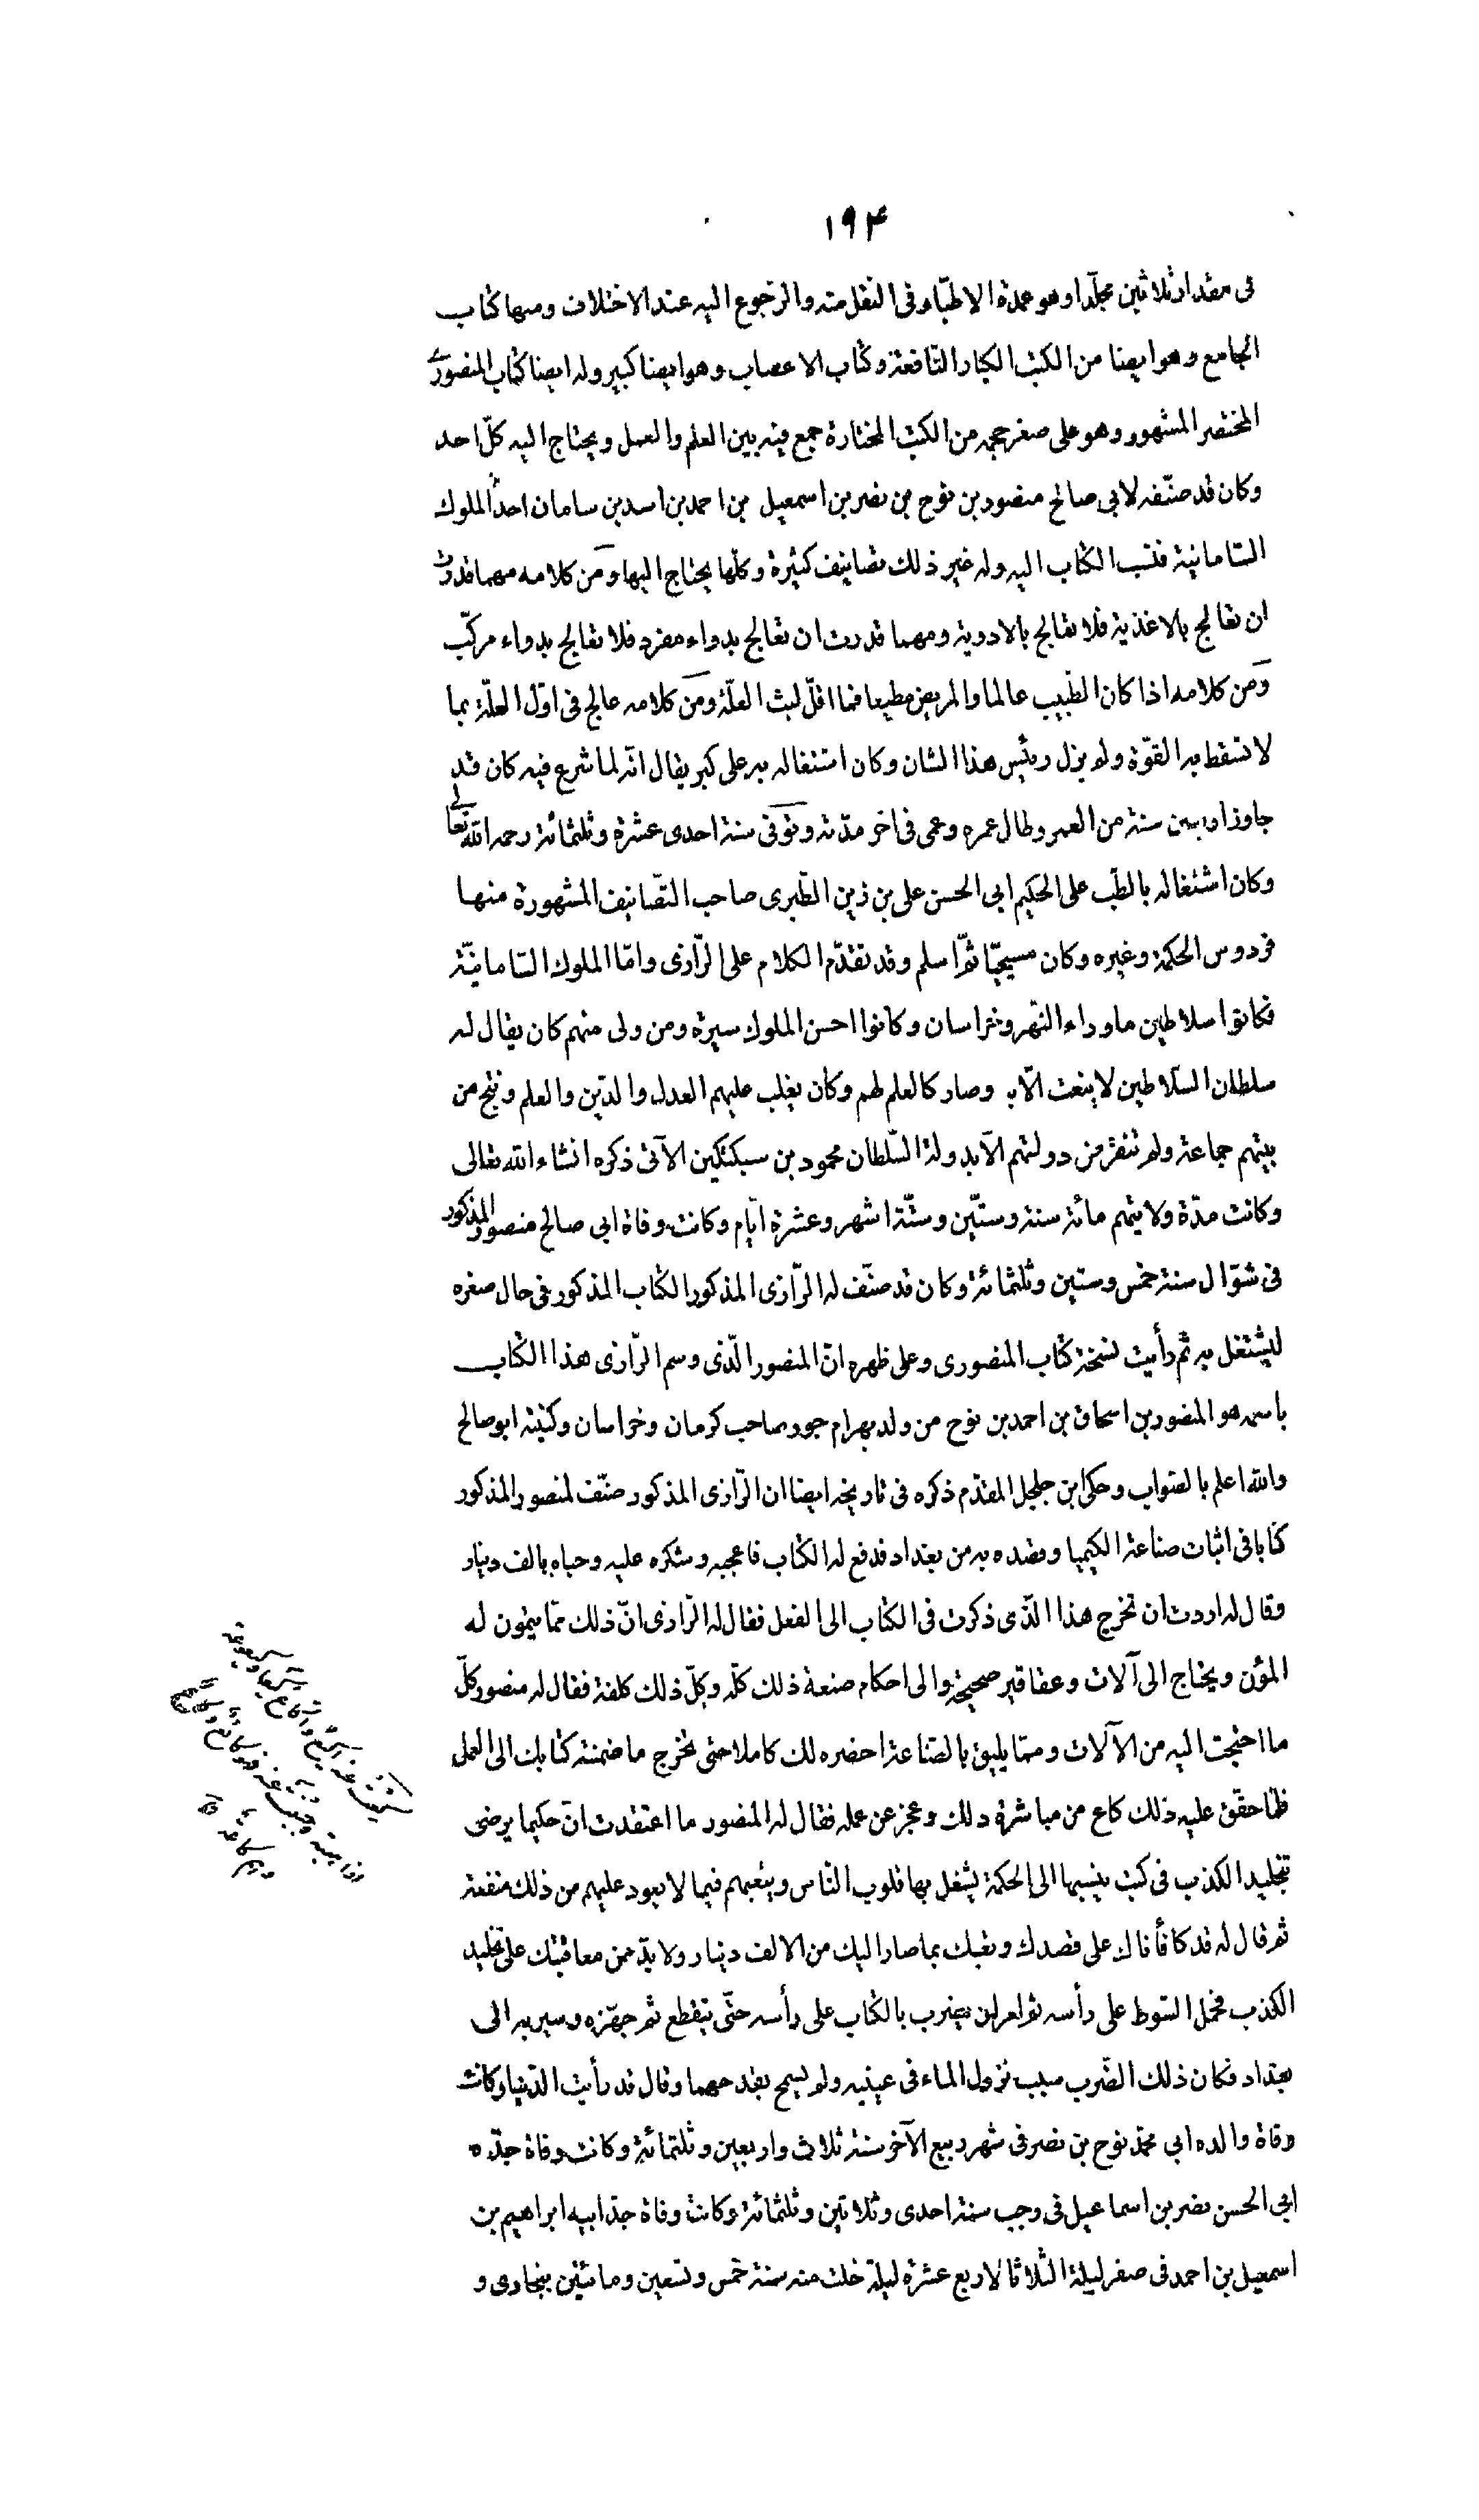 ١٩۴
فى مقدار ثلاثين مجلّدا وهو عمدة الاطبّاء فى النقل منه والرّجوع اليه عند الاختلاف ومنها كتاب
الجامع وهو ايضا من الكتب الكبار النّافعة وكتاب الاعصاب وهو ايضا كبير وله ايضا كتاب المنصورى
المختصر المشهور وهو على صغر حجمه من الكتب المختارة جمع فيه بين العلم والعمل ويحتاج اليه كلّ احد
وكان قد صنّفه لابى صالح منصور بن نوح بن نصر بن اسمعيل بن احمد بن اسد بن سامان احد الملوك
السّامانية فنسب الكتاب اليه وله غير ذلك تصانيف كثيرة وكلّها يحتاج اليها ومن كلامه مهما قدرت
ان تعالج بالاغذية فلا تعالج بالادوية ومهما قدرت ان تعالج بدواء مفرد فلا تعالج بدواء مركّب
ومن كلامه اذا كان الطّبيب عالما والمريض مطيعا فما اقلّ لبث العلّة ومن كلامه عالج فى اوّل العلّة بما
لا تسقط به القوّة ولم يزل رئيس هذا الشان وكان اشتغاله به على كبر يقال انّه لما شرع فيه كان قد
جاوز اربعين سنة من العمر وطال عمره وعمى فى اخر مدّته وتوّفى سنة احدى عشرة وثلثمائة رحمه الله تعالى
وكان اشتغاله بالطّب على الحكيم ابى الحسن على بن زين الطّبرى صاحب التّصانيف المشهورة منها
فردوس الحكمة وغيره وكان مسيحيّا ثمّ اسلم وقد تقدّم الكلام على الرّازى وامّا الملوك السّامانيّة
فكانوا سلاطين ماوراء النّهر وخراسان وكانوا احسن الملوك سيرة ومن ولى منهم كان يقال له
سلطان السّلاطين لا ينعت الّا به وصار كالعلم لهم وكان يغلب عليهم العدل والدّين والعلم ونتج من
بيتهم جماعة ولم تنقرض دولتهم الّا بدولة السّلطان محمود بن سبكتكين الآتى ذكره انشاء الله تعالى
وكانت مدّة ولايتهم مائة سنة وستّين وستّة اشهر وعشرة ايّام وكانت وفاة ابى صالح منصور المذكور
فى شوّال سنة خمس وستين وثلثمائة وكان قد صنّف له الرّازى المذكور الكتاب المذكور فى حال صغره
ليشتغل به ثم رأيت نسخة كتاب المنصورى وعلى ظهره انّ المنصور الّذى وسم الرّازى هذا الكتاب
باسمه هو المنصور بن اسحاق بن احمد بن نوح من ولد بهرام جور صاحب كرمان وخراسان وكنيته ابو صالح
والله اعلم بالصّواب وحكى ابن جلجل المقدّم ذكره فى تاريخه ايضا ان الرّازى المذكور صنّف لمنصور المذكور
كتابا فى اثبات صناعة الكيميا وقصده به من بغداد فدفع له الكتاب فاعجبه وشكره عليه وحباه بالف دينار
وقال له اردت ان تخرج هذا الّذى ذكرت فى الكتاب الى الفعل فقال له الرّازى انّ ذلك ممّا يتمون له
المؤن ويحتاج الى آلات وعقاقير صحيحة والى احكام صنعة ذلك كلّه وكلّ ذلك كلفة فقال له منصور كلّ
ما احتجت اليه من الآلات وممّا يليق بالصّناعة احضره لك كاملا حتى تخرج ما ضمنته كتابك الى العمل
فلمّا حقّق عليه ذلك كاع من مباشرة ذلك وعجز عن عمله فقال له المنصور ما اعتقدت انّ حكيما يرضى
بتخليد الكذب فى كتب ينسبها الى الحكمة يشغل بها قلوب النّاس ويتعبهم فيما لا يعود عليهم من ذلك منفعة
ثم قال له قد كافأناك على قصدك وتعبك بما صار اليك من الالف دينار ولا بدّ من معاقبتك على تخليد
الكذب فحمل السّوط على رأسه ثم امر ان يضرب بالكتاب على رأسه حتّى يتقطع ثم جهّزه وسير به الى
بغداد فكان ذلك الضّرب سبب نزول الماء فى عينيه ولم يسمح بقدحهما وقال قد رأيت الدّنيا وكانت
وفاة والده ابى محمّد نوح بن نصر فى شهر ربيع الآخر سنة ثلاث واربعين وثلثمائة وكانت وفاة جدّه
ابى الحسن نصر بن اسماعيل فى رجب سنة احدى وثلاثين وثلثمائة وكانت وفاة جدّ ابيه ابراهيم بن
اسمعيل بن احمد فى صفر ليلة الثّلاثا لاربع عشرة ليلة خلت منه سنة خمس وتسعين ومائتين ببخارى و